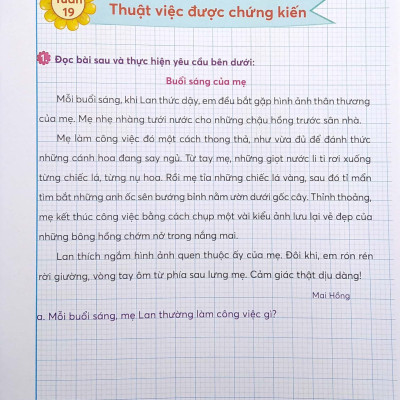 Tuần
19
Thuật việc được chứng kiến
1 Đọc bài sau và thực hiện yêu cầu bên dưới:
Buổi sáng của mẹ
Mỗi buổi sáng, khi Lan thức dậy, em đều bắt gặp hình ảnh thân thương
của mẹ. Mẹ nhẹ nhàng tưới nước cho những chậu hồng trước sân nhà.
Mẹ làm công việc đó một cách thong thả, như vừa đủ để đánh thức
những cánh hoa đang say ngủ. Từ tay mẹ, những giọt nước li ti rơi xuống
từng chiếc lá, từng nụ hoa. Rồi mẹ tỉa những chiếc lá vàng, sau đó tỉ mẩn
tìm bắt những anh ốc sên bướng bỉnh nằm ườn dưới gốc cây. Thỉnh thoảng,
mẹ kết thúc công việc bằng cách chụp một vài kiểu ảnh lưu lại vẻ đẹp của
những bông hồng chớm nở trong nắng mai.
Lan thích ngắm hình ảnh quen thuộc ấy của mẹ. Đôi khi, em rón rén
rời giường, vòng tay ôm từ phía sau lưng mẹ. Cảm giác thật dịu dàng!
Mai Hồng
a. Mỗi buổi sáng, mẹ Lan thường làm công việc gì?